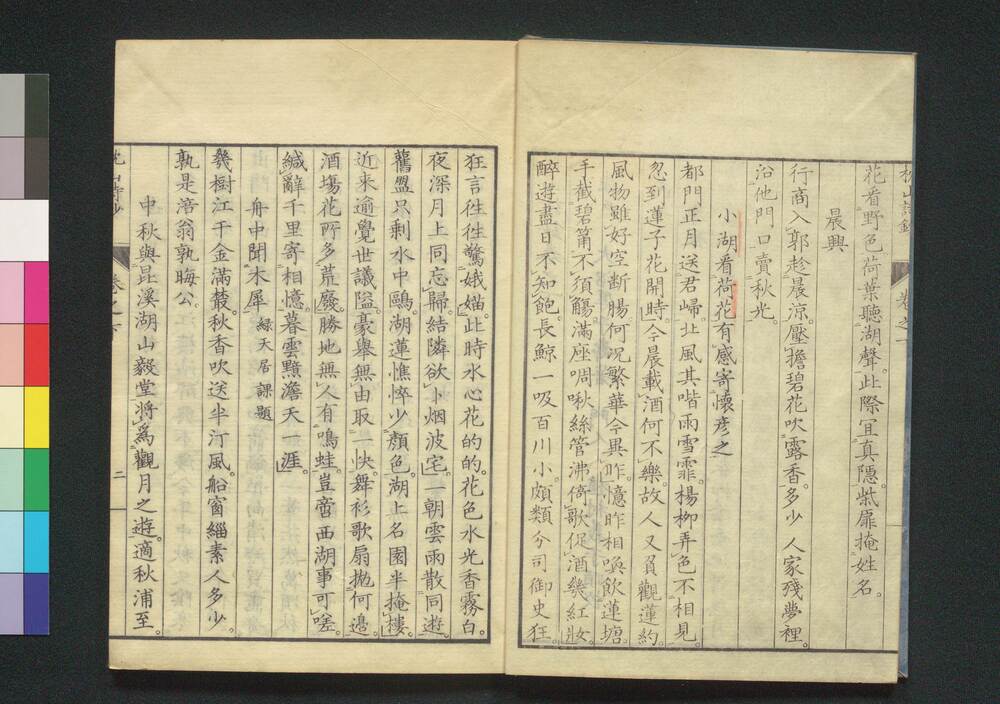 花看野色荷葉聽湖聲。此際宜真隱。柴扉掩姓名。
晨興
行商入郭趁晨涼。壓擔碧花吹露香。多少人家殘夢裡。
沿他門口賣秋光。
小湖看荷花有感寄懷彥之
都門正月送君歸。北風其喈雨雪霏。楊柳弄色不相見。
忽到蓮子花開時。今晨載酒何不樂。故人又負觀蓮約。
風物雖好空斷腸。何況繁華今異昨。憶昨相喚飲蓮塘。
手截碧筩不須觴。滿座啁啾絲管沸。倚歌促酒幾紅妝。
醉遊盡日不知飽。長鯨一吸百川小。頗類今司御史狂。
狂言往往驚娥媌。此時水心花的的。花色水光香霧白。
夜深月上同忘歸。結隣欲卜烟波宅。一朝雲雨散同遊。
舊盟只剩水中鷗。湖蓮憔悴少顏色。湖上名園半掩樓。
近來逾覺世議隘。豪舉無由取一快。舞衫歌扇拋何邊。
酒塲花所多荒廢。勝地無人有鳴蛙。豈啻西湖事可嗟。
緘辭千里寄相憶。暮雲黯澹天一涯。
舟中聞木犀 綠天居課題
幾樹江干金滿叢。秋香吹送半汀風。船窗緇素人多少。
孰是涪翁孰晦公。
中秋與昆溪湖山毅堂將爲觀月之遊。適秋浦至。
卷之六
二